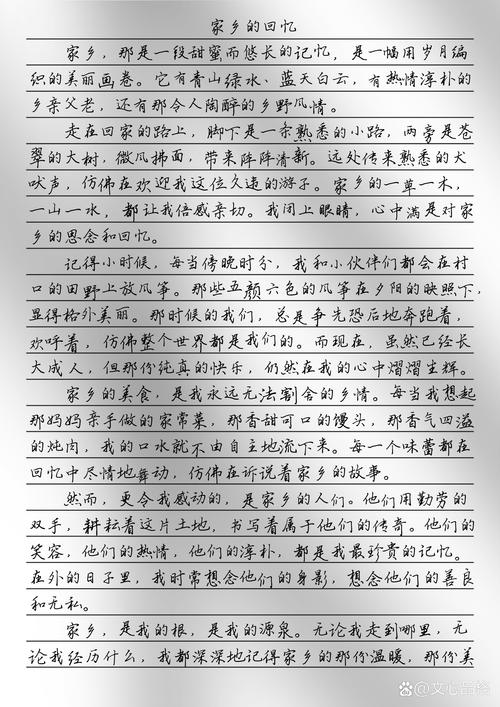 家乡的回忆
家乡，那是一段甜蜜而悠长的记忆，是一幅用岁月编
织的美丽画卷。它有青山绿水、蓝天白云，有热情淳朴的
乡亲父老，还有那令人陶醉的乡野风情。
走在回家的路上，脚下是一条熟悉的小路，两旁是苍
翠的大树，微风拂面，带来阵阵清新。远处传来熟悉的犬
吠声，仿佛在欢迎我这位久违的游子。家乡的一草一木，
一山一水，都让我倍感亲切。我闭上眼睛，心中满是对家
乡的思念和回忆。
记得小时候，每当傍晚时分，我和小伙伴们都会在村
口的田野上放风筝。那些五颜六色的风筝在夕阳的映照下，
显得格外美丽。那时候的我们，总是争先恐后地奔跑着，
欢呼着，仿佛整个世界都是我们的。而现在，虽然已经长
大成人，但那份纯真的快乐，仍然在我的心中熠熠生辉。
家乡的美食，是我永远无法割舍的乡情。每当我想起
那妈妈亲手做的家常菜，那香甜可口的馒头，那香气四溢
的炖肉，我的口水就不由自主地流下来。每一个味蕾都在
回忆中尽情地舞动，仿佛在诉说着家乡的故事。
然而，更令我感动的，是家乡的人们。他们用勤劳的
双手，耕耘着这片土地，书写着属于他们的传奇。他们的
笑容，他们的热情，他们的淳朴，都是我最珍贵的记忆。
在外的日子里，我时常想念他们的身影，想念他们的善良
和无私。
家乡，是我的根，是我的源泉。无论我走到哪里，无
论我经历什么，我都深深地记得家乡的那份温暖，那份美